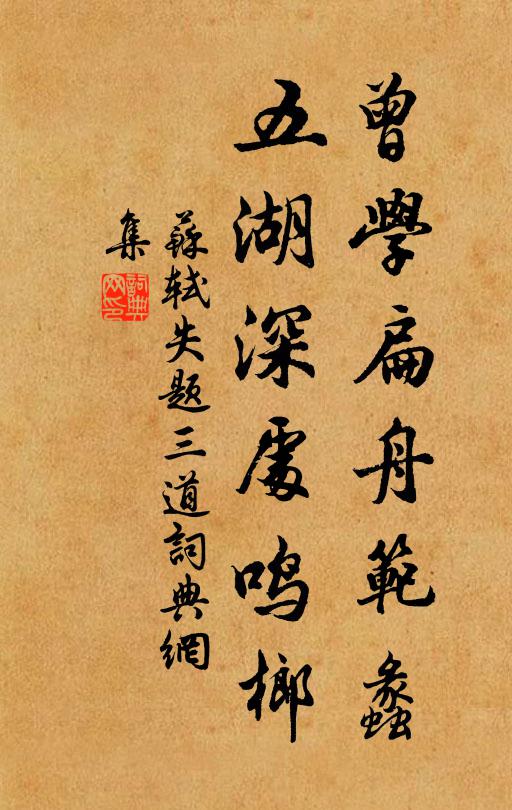 曾學扁舟範蠡
五湖深處鳴榔
蘇軾失題三道詞典網
集
詞典
网印